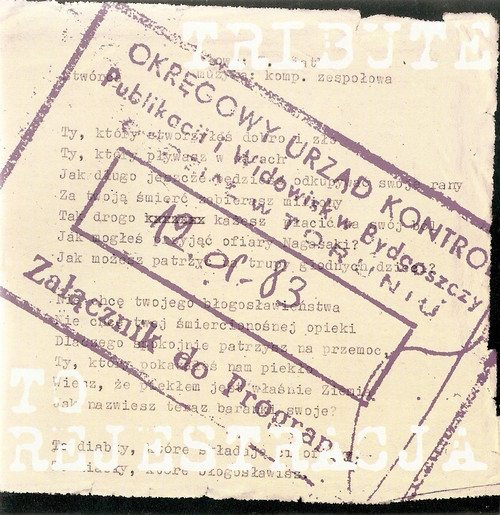 TRIBUTE
TO
REJESTRACJA
OKRĘGOWY URZĄD KONTROLI
Publikacji i Widowisk w Bydgoszczy
W TORUNIU
12.01.83
Załącznik do program
muzyka: komp. zespołowa
Utwór
Ty, który stworzyłeś dobro i zło
Ty, który pływasz w
Jak długo jeszcze będziesz odkupywał swoje rany
Za twoją śmierć zabierasz miliony
Tak drogo xxxxxxx każesz płacić za swój
Jak mogłeś przyjąć ofiary Nagasaki?
Jak możesz patrzyć na trupy głodnych dzieci?
Nie chcę twojego błogosławieństwa
Nie chcę twej śmiercionośnej opieki
Dlaczego spokojnie patrzysz na przemoc,
Ty, który pokazałeś nam piekło
Wiesz, że piekłem jest właśnie Ziemia
Jak nazwiesz teraz baranki swoje?
To diabły, które składają ci
diabły, które błogosławisz.